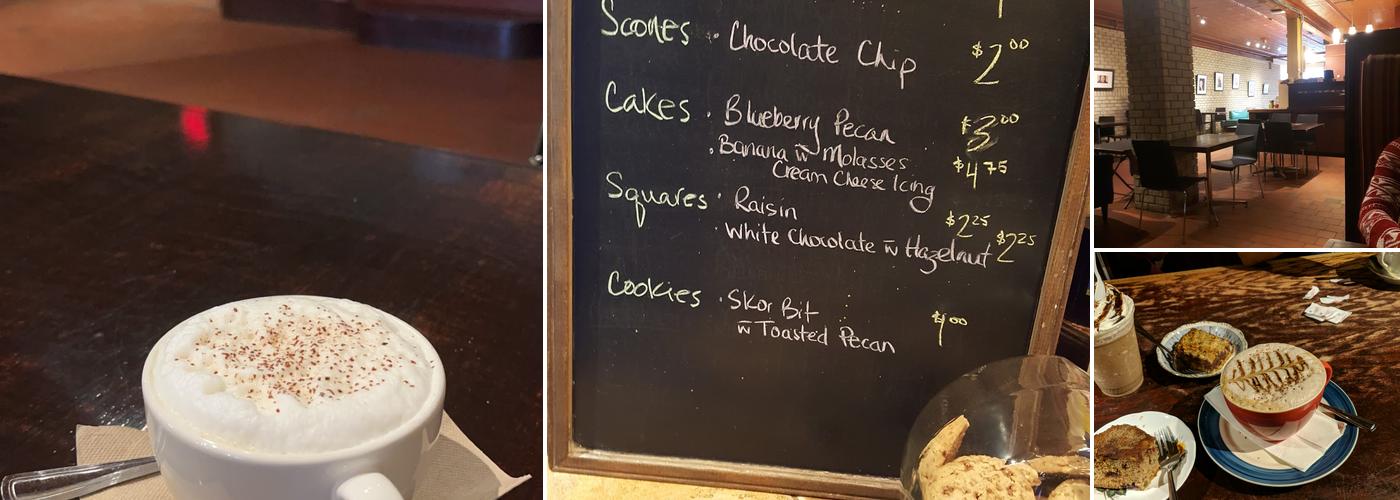 Scones · Chocolate Chip $2.00
Cakes · Blueberry Pecan $3.00
· Banana w̄ Molasses $4.75
Cream Cheese Icing
Squares · Raisin $2.25
· White Chocolate w̄ Hazelnut $2.25
Cookies · Skor Bit
w̄ Toasted Pecan $1.00